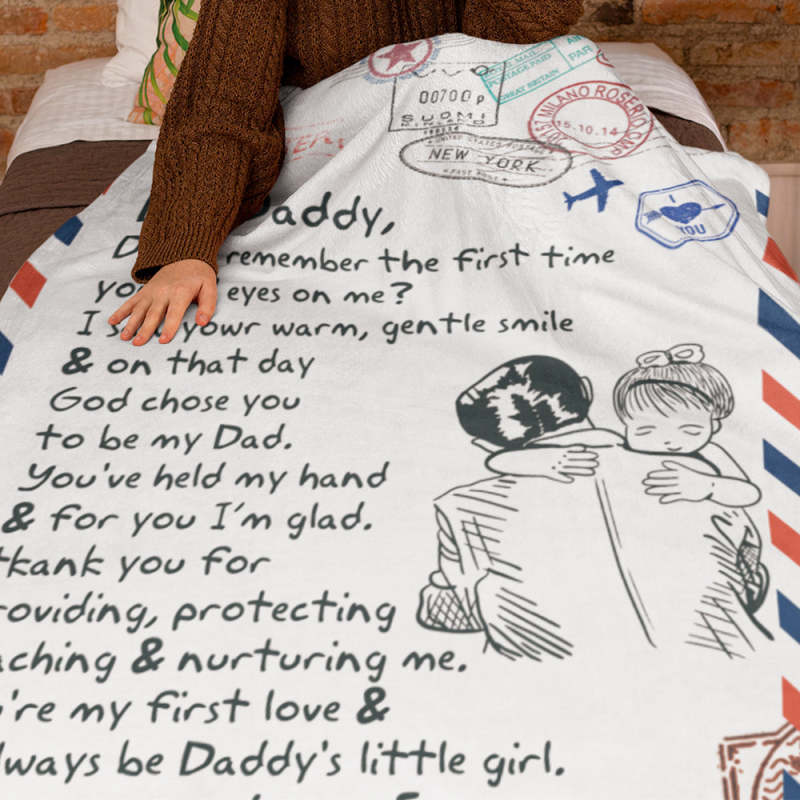 POSTAGE PAID
GREAT BRITAIN
AIR
PAR
00700 p
SUOMI
FINLAND
MILANO ROSERIO
15.10.14
NEW YORK
I
YOU
Daddy,
remember the first time
eyes on me?
I your warm, gentle smile
& on that day
God chose you
to be my Dad.
You've held my hand
& for you I'm glad.
thank you for
roviding, protecting
aching & nurturing me.
're my first love &
lways be Daddy's little girl.